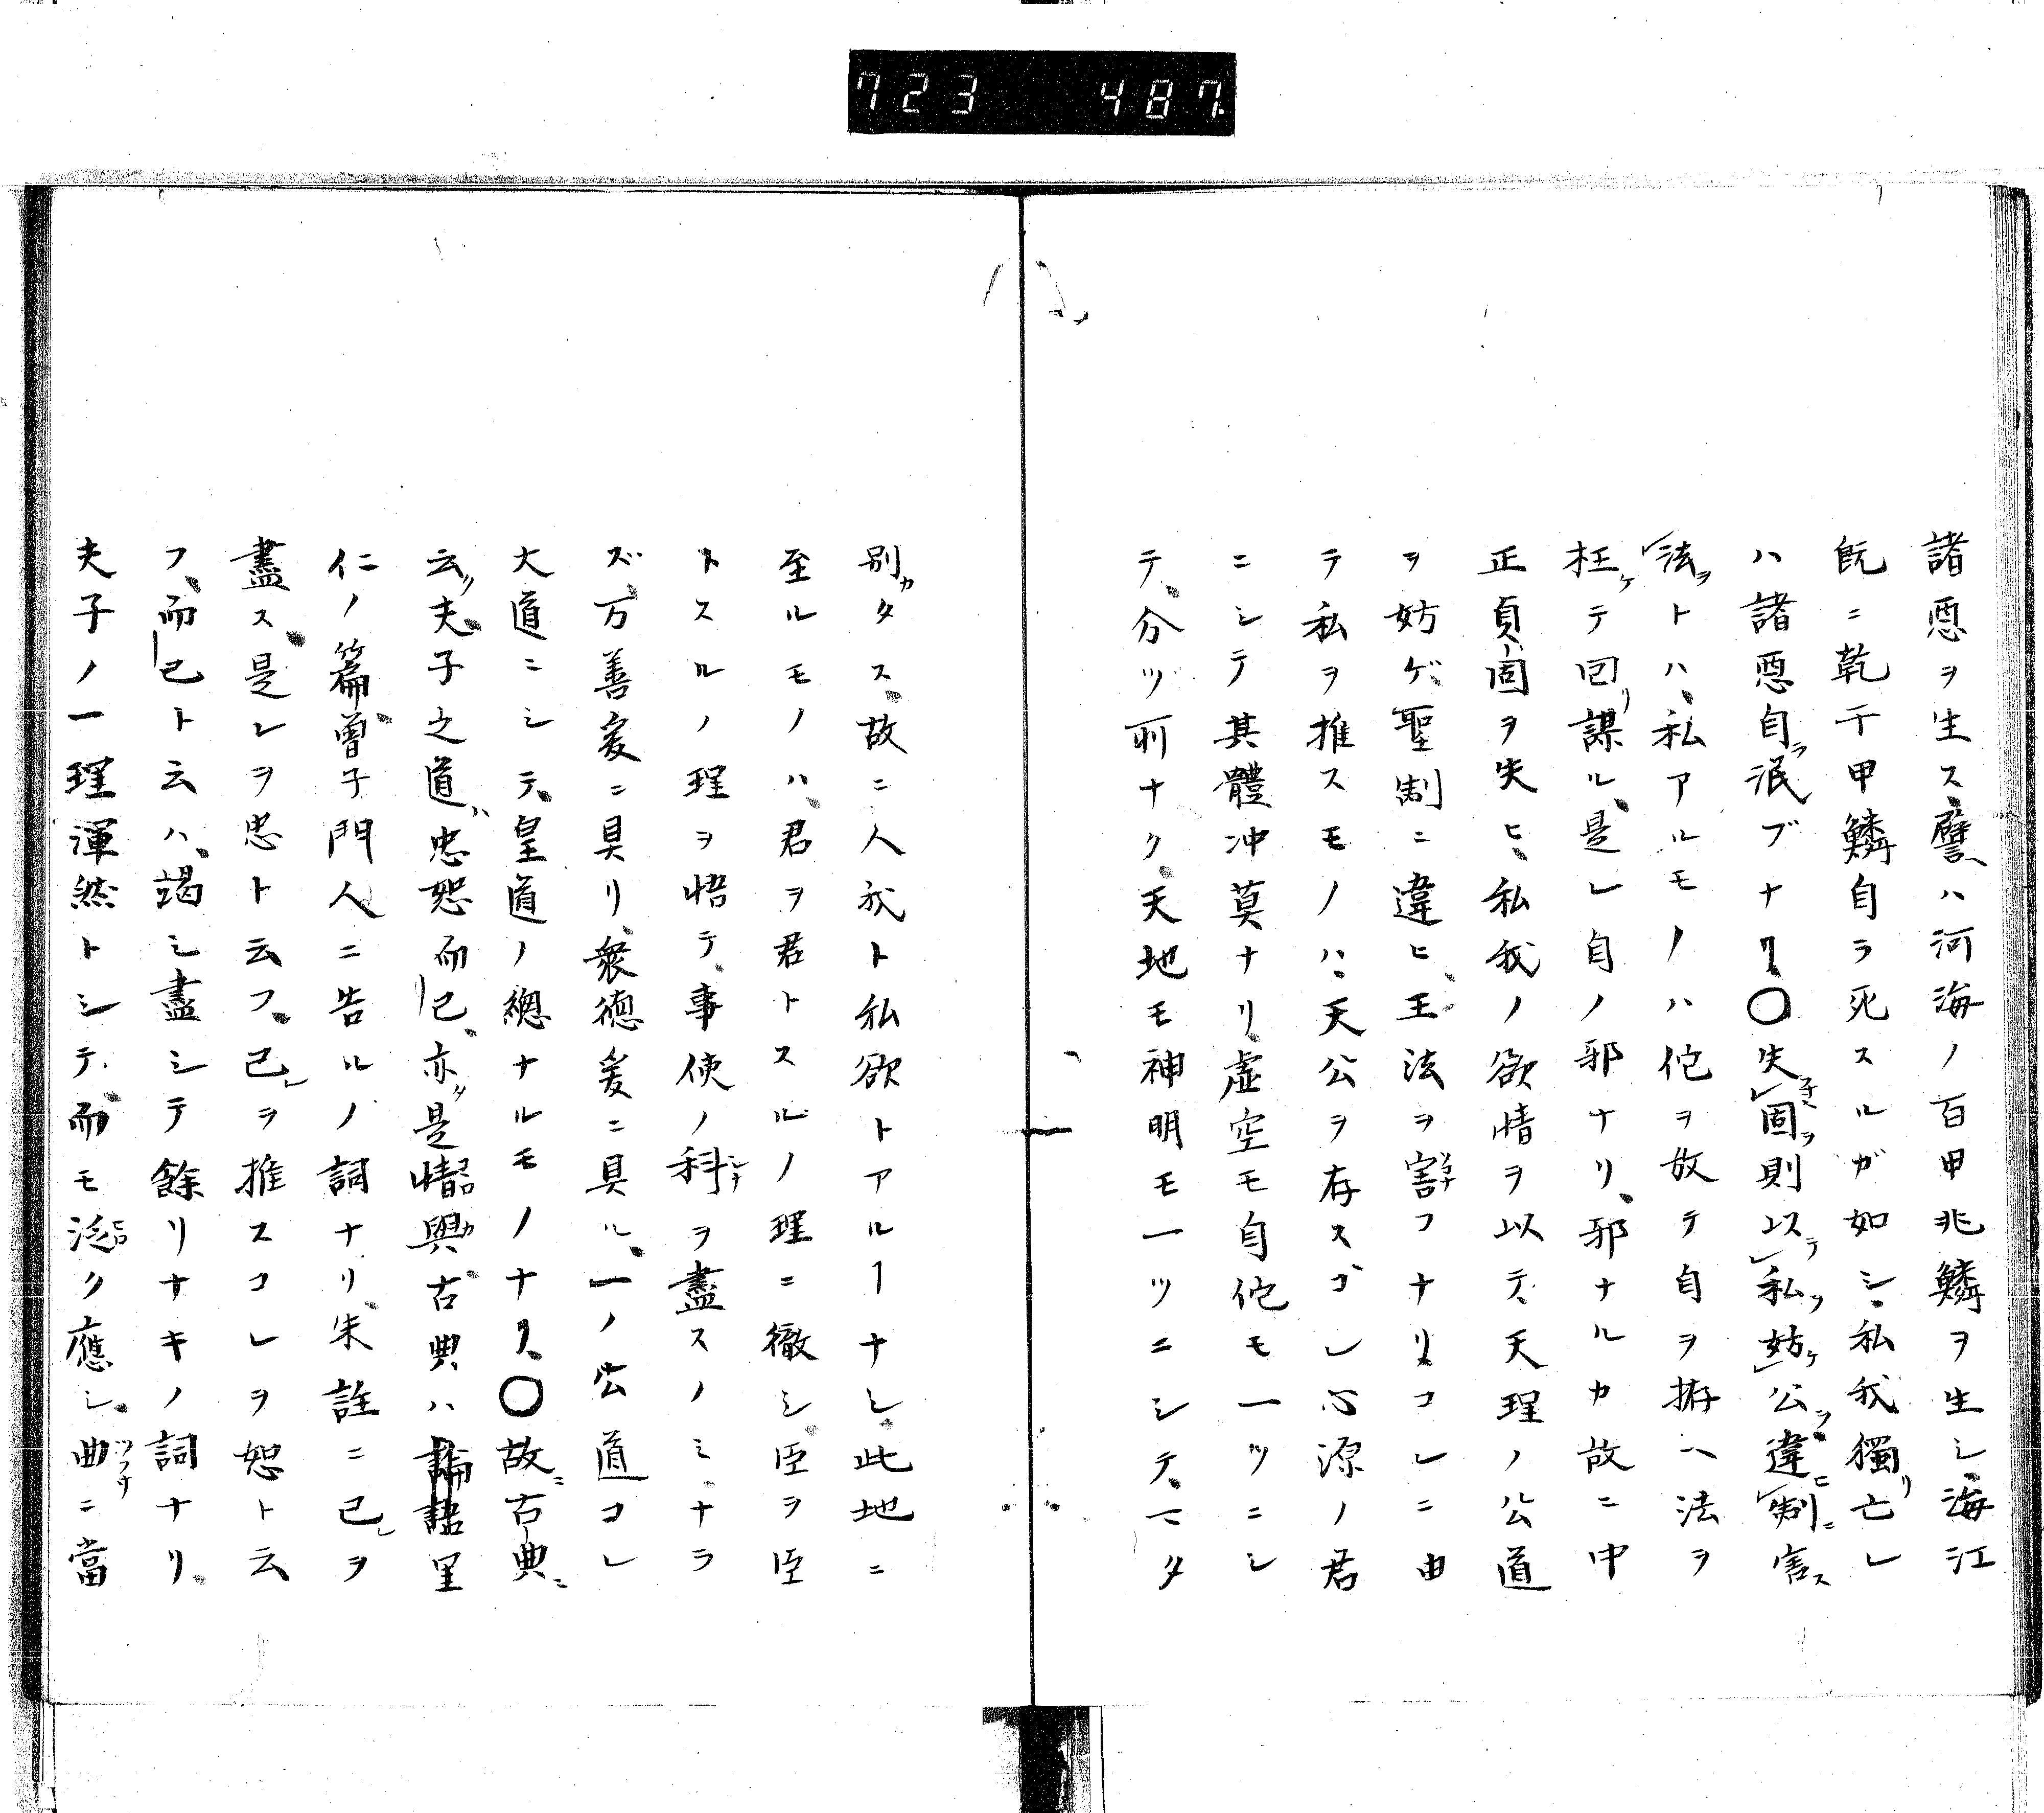 723 487
諸悪ヲ生ス、譬ハ河海ノ百甲兆鱗ヲ生シ、海江
既ニ乾テ甲鱗自ラ死スルガ如シ、私我獨リ亡レ
ハ諸悪自ラ泯ブナリ、〇失固ヲ則以テ私ヲ妨ケ公ヲ違ヒ制ニ害ス
法ヲトハ、私アルモノハ佗ヲ放テ自ヲ拵ヘ法ヲ
枉ケテ回リ謀ル、是レ自ノ邪ナリ、邪ナルカ故ニ中
正貞固ヲ失ヒ、私我ノ欲情ヲ以テ、天理ノ公道
ヲ妨ゲ、聖制ニ違ヒ、王法ヲ害ナフナリコレニ由
テ私ヲ推スモノハ、天公ヲ存スベシ心源ノ君
ニシテ其體冲莫ナリ、虚空モ自佗モ一ツニシ
テ、分ツ所ナク、天地モ神明モ一ツニシテ、マタ
別カタス、故ニ人我ト私欲トアルヿナシ、此地ニ
至ルモノハ、君ヲ君トスルノ理ニ徹シ、臣ヲ臣
トスルノ理ヲ悟テ、事使ノ科シナヲ盡スノミ、ナラ
ズ、万善爰ニ具リ、衆徳爰ニ具ル、一ノ公道コレ
大道ニシテ、皇道ノ總ナルモノナリ、〇故ニ古典ニ
云ク、夫子之道ハ、忠恕而已、亦タ是惜興、古典ハ論語里
仁ノ篇、曽子門人ニ告ルノ詞ナリ、朱註ニ己レヲ
盡ス、是レヲ忠ト云フ、己レヲ推スコレヲ恕ト云
フ、而已ト云ハ、竭シ盡シテ餘リナキノ詞ナリ、
夫子ノ一理渾然トシテ、而モ泛ヒロク應シ、曲ツフサニ當